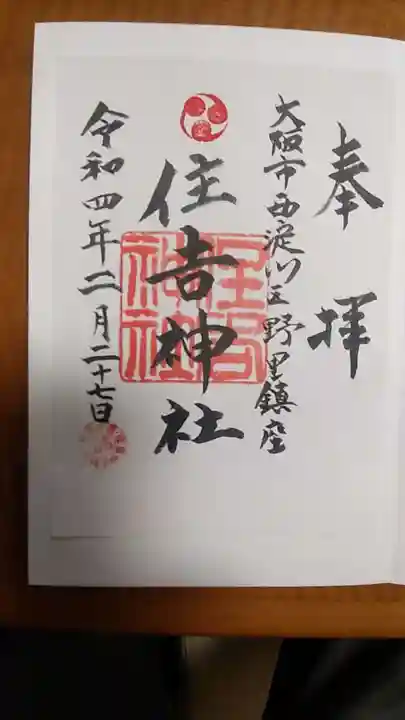 奉拝
大阪市西淀川区野里鎮座
住吉神社
住吉神社
令和四年二月二十七日